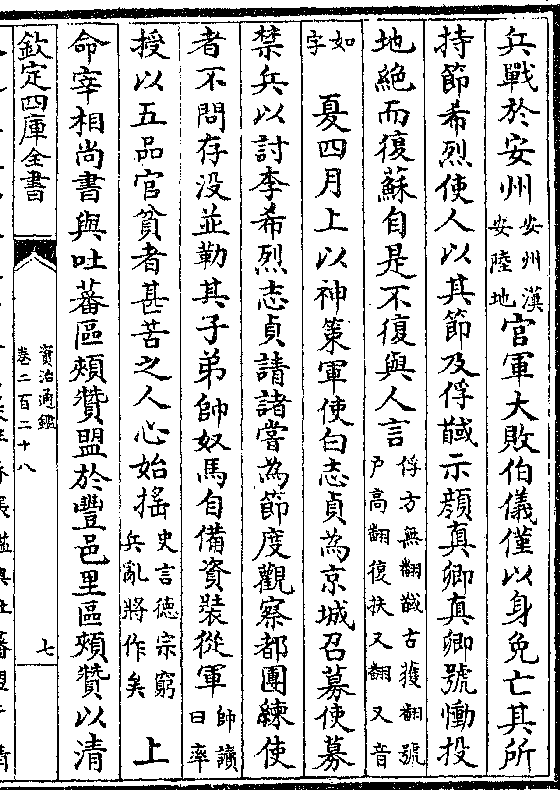 兵戰於安州安州漢安陸地官軍大敗伯儀僅以身免亡其所
持節希烈使人以其節及俘馘示顔真卿真卿號慟投
地絶而復蘇自是不復與人言俘方無翻馘古獲翻號戶高翻復扶又翻又音
如字　夏四月上以神策軍使白志貞為京城召募使募
禁兵以討李希烈志貞請諸嘗為節度觀察都團練使
者不問存沒並勒其子弟帥奴馬自備資裝從軍帥讀曰率
授以五品官貧者甚苦之人心始揺史言德宗窮兵亂將作矣　上
命宰相尚書與吐蕃區頰贊盟於豐邑里區頰贊以清
欽定四庫全書
資治通鑑
卷二百二十八
七